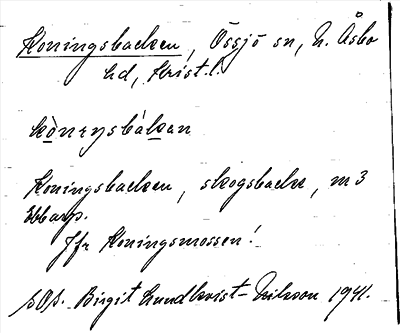 Koningsbacken, Össjö sn, N. Åsbo
hd, Krist. l.
Koningsbacken, skogsbacke, m 3
Ebbarp.
Jfr Koningsmossen!
Birgit Lundkvist-Nilsson 1941.